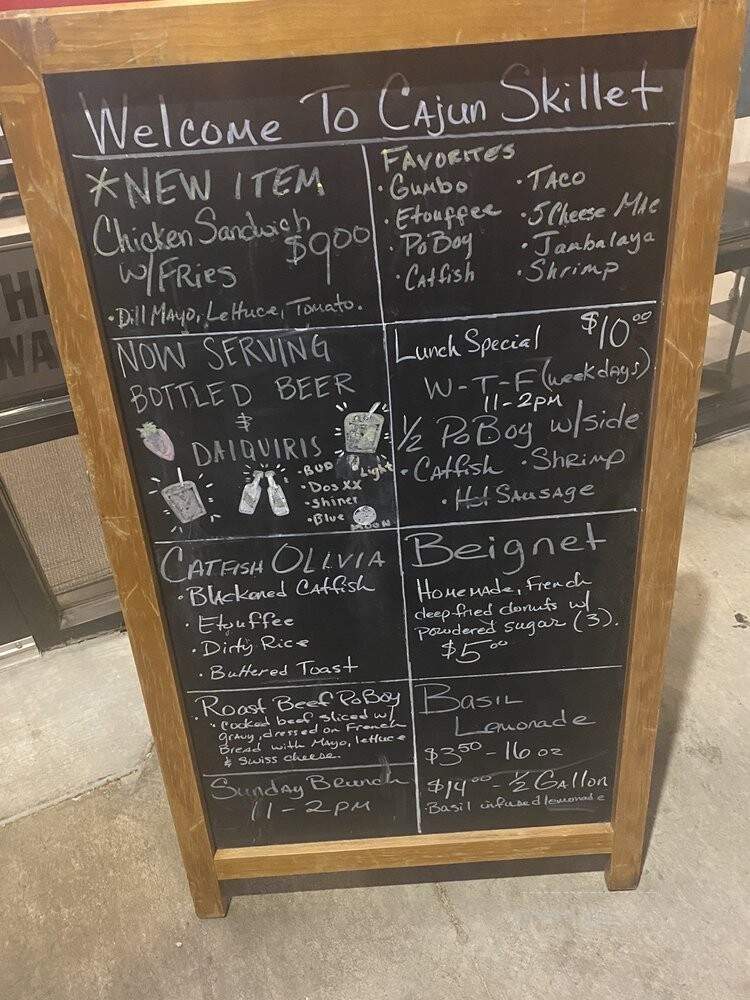 Welcome To Cajun Skillet
*NEW ITEM
Chicken Sandwich
$9.00
w/FRies
•Dill Mayo, Lettuce, Tomato.
FAVORITES
•Gumbo
•Etouffee
•PoBoy
•Catfish
•Taco
•5 Cheese Mac
•Jambalaya
•Shrimp
NOW SERVING
BOTTLED BEER
&
DAIQUIRIS
•Bud Light
•Dos XX
•Shiner
•Blue Moon
Lunch Special $10.00
W-T-F (weekdays)
11-2pm
1/2 PoBoy w/side
•Catfish •Shrimp
•Hot Sausage
Catfish Olivia
•Blackened Catfish
•Etouffee
•Dirty Rice
•Buttered Toast
Beignet
Homemade, French
deep fried donuts w/
powdered sugar (3).
$5.00
Roast Beef PoBoy
•Cooked beef sliced w/
gravy, dressed on French
Bread with Mayo, lettuce
& swiss cheese.
Sunday Brunch
11-2pm
Basil
Lemonade
$3.50 - 16 oz
$14.00 - 1/2 Gallon
Basil infused lemonade